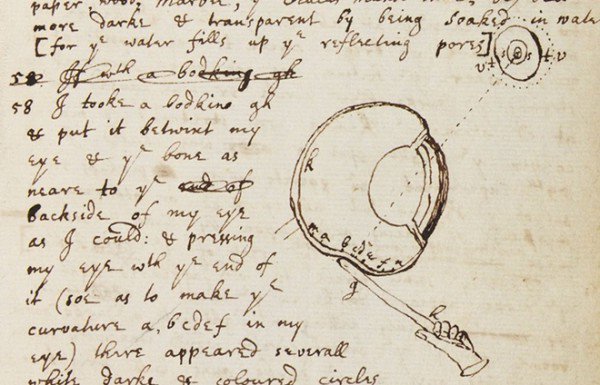 paper, wood, Marble, ye
more darke & transparent by being soaked in wate
[for ye water fills up ye reflecting pores]
58 If wth a bodking gh
58 I tooke a bodkine gh
& put it betwixt my
eye & ye bone as
neare to ye end of
backside of my eye
as I could: & pressing
my eye wth ye end of
it (soe as to make ye
curvature a, bcdef in my
eye) there appeared severall
white darke & coloured circles
r s s t v
k
m a b c d e f n
g
h